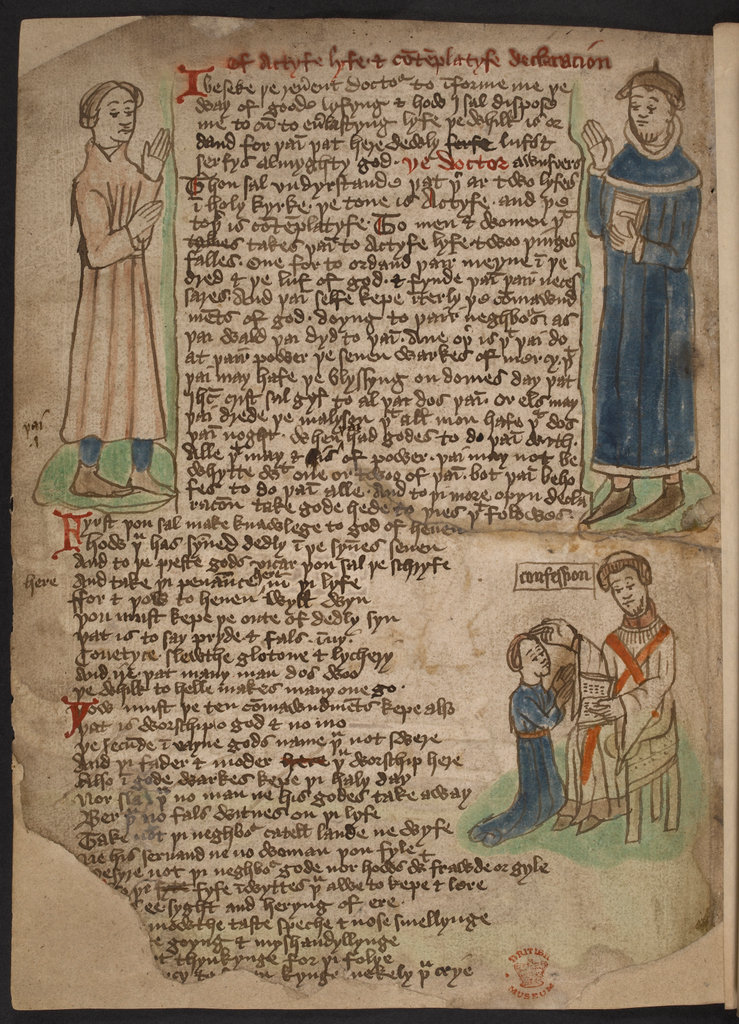 Of Actyfe lyfe & cōtēplatyfe declaracion
I beseke þe reuerent doctoʳ to īforme me þe
way of gode lyfyng & how I sal dispose
me to cū to euerlastyng lyfe þe whilk is or
dand for þaī þat here dewly lufs &
serfys almyghty god. Þe doctor awnswers
Thou sal vndyrstande þat þʳ ar two lyfes
ī holy kyrke. þe tone is Actyfe. and þe
toþʳ is cōtēplatyfe. To men & women þᵗ
takes þaī to Actyfe lyfe two þinges
falles. One for to ordand þair meyne ī þe
dred & þe luf of god. & fynde þaī þair neces
sares. And þai selfe kepe īterly þe cōmawnd
mēts of god. doyng to þair neghboʳ as
þai wald þai dyd to þaī. Ane oþʳ is þᵗ þai do
at þair power þe seuen warkes of mercy. þᵗ
þai may hafe þe blyssyng on domes day þat
ihc crist sal gyf to al þat dos þaī. or els may
þai drede þe malyson þᵗ all mon hafe þᵗ dos
þaī noght. when þai had godes to do þaī with.
Alle þᵗ may & of power. þai may not be
whytte wᵗ one or twoo of þaī. bot þai beho
fes to do þaī alle. And to þi more opyn decla
racōn take gode hede to þies þᵗ folowos.
Fyrst þou sal make knawlege to god of heuen
How þᵘ has syned dedly ī þe synes seuen
And to þe preste gods vicar þou sal þe schryfe
here And take þi penance here ī þi lyfe
ffor & þow to heuen wyll wyn
þou must kepe þe oute of dedly syn
þat is to say pryde & fals īuy
Couetyce slewthe glotone & lychery
And ire þat many man dos woo
þe whilk to helle makes many one go.
Yow must þe ten comawndmēts kepe also
þat is worschip o god & no mo
þe secūde ī vayne gods name þᵘ not swere
And þi fader & moder þᵘ worschip here
Also ī gode warkes kepe þi haly day
Nor sla þᵘ no man ne his godes take away
Ber þᵘ no fals witnes on þi lyfe
Take not þi neghboʳ catell lande ne wyfe
ne his seruand ne no woman þou fyle
desyre not þi neghboʳ gode nor hows be frawde or gyle
þi fyfe īwyttes þᵘ awe to kepe & lere
syght and heryng of ere
mowthe taste speche & nose smellynge
goyng & myshandyllynge
thynkynge for þi folye
mekely þᵘ crye
þai
confession
BRITISH MUSEUM